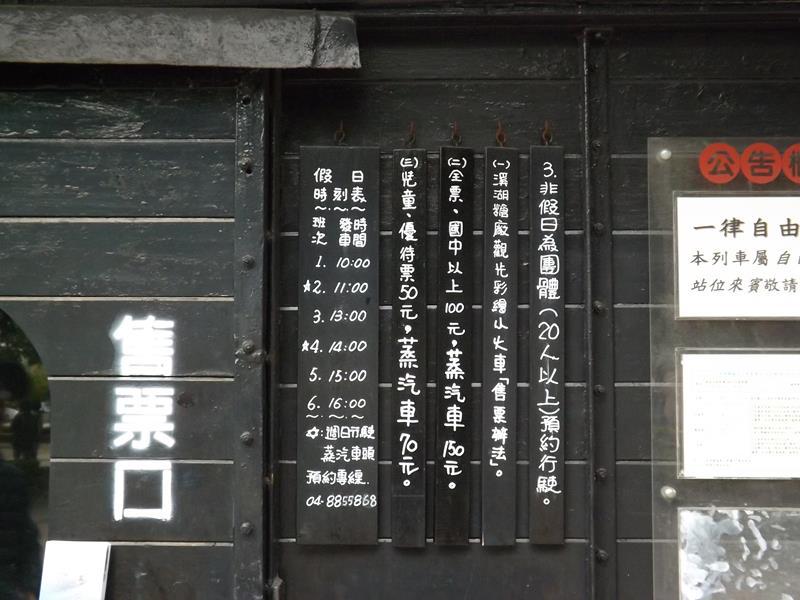 售票口
假日
時刻表
～～～～
班次 發車時間
1. 10:00
☆2. 11:00
3. 13:00
☆4. 14:00
5. 15:00
6. 16:00
～～～～
☆:週日行駛
蒸汽車頭
預約專線.
04-8855868
3.非假日為團體(20人以上)預約行駛。
(一)溪湖糖廠觀光彩繪小火車「售票辦法」。
(二)全票、國中以上100元,蒸汽車150元。
(三)児童、優待票50元,蒸汽車70元。
公告
一律自由
本列車屬自
站位來賓敬請